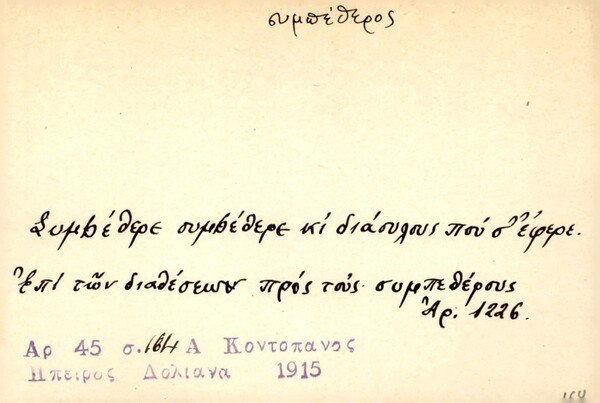 συμπέθερος
Συμβέθερε συμβέθερε κί διάσυλους πού σ' ἔφερε.
Ἐπί τῶν διαθέσεων πρός τούς συμπεθέρους
Ἀρ. 1226.
Αρ 45 σ. 164 Α Κοντοπανος
Ηπειρος Δολιανα 1915
164